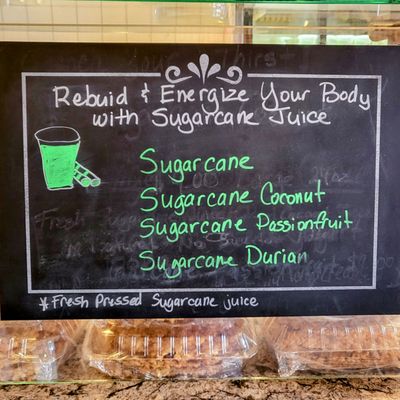 Rebuid & Energize Your Body
with Sugarcane Juice
Sugarcane
Sugarcane Coconut
Sugarcane Passionfruit
Sugarcane Durian
* Fresh Pressed Sugarcane juice